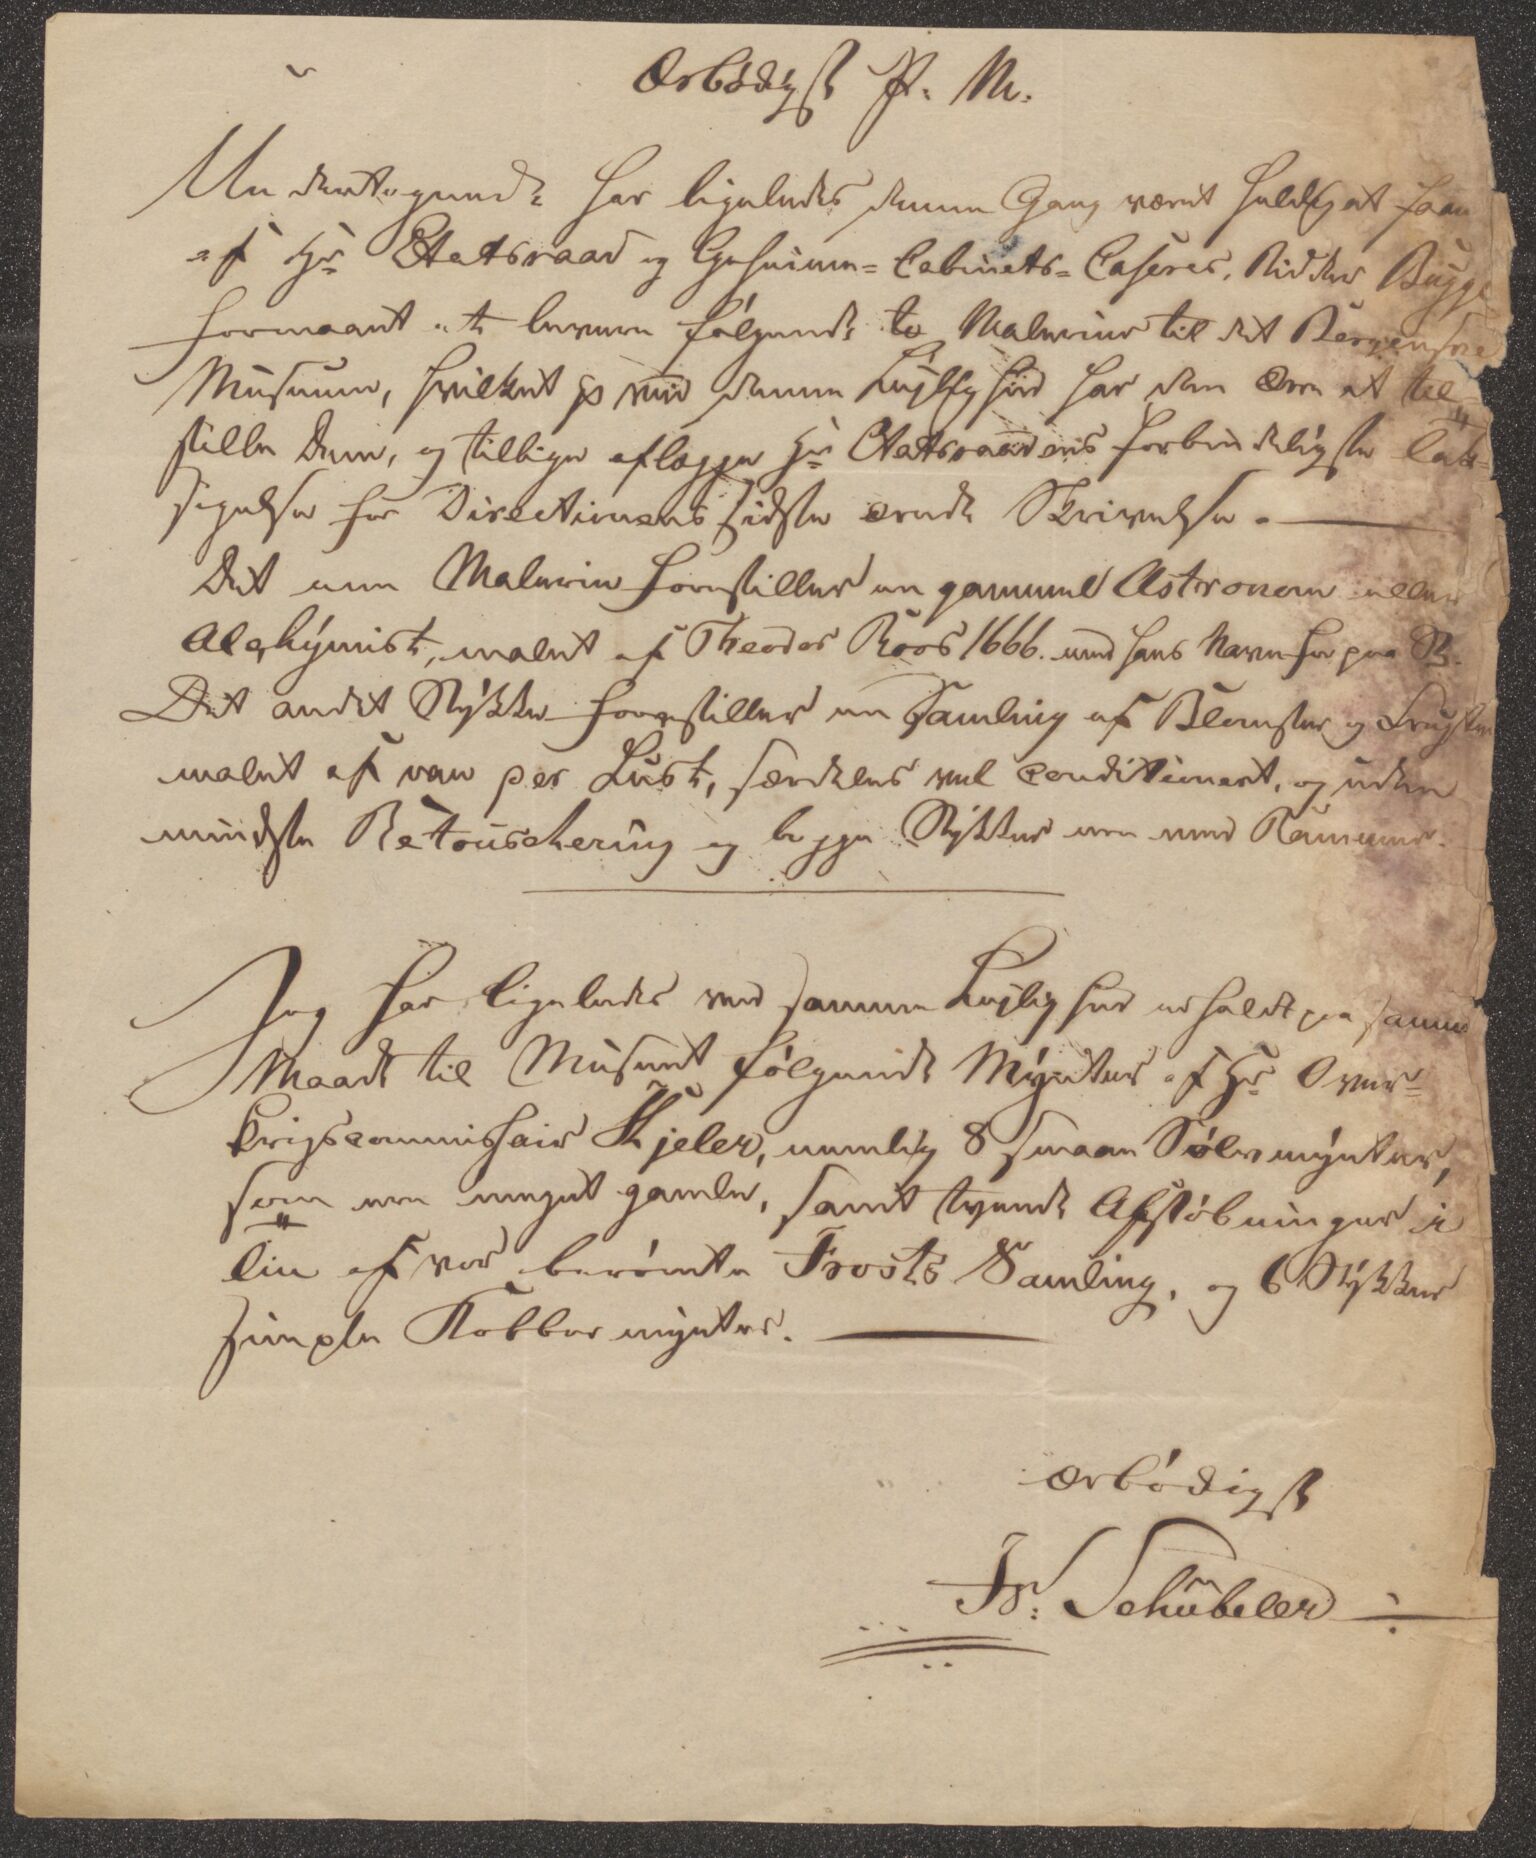 Ærbödigst P. M.
Undertegnede har ligeledes denne Gang været heldig at faae
af Hr Etatsraad og Geheime=Cabinets=Caserer, Ridder Bügge
formaaet at levere følgende to Malerier til det Bergenske
Museum, hvilket jeg ved denne Lejlighed har den Ære at til=
stille Dem, og tillige aflægge Hr Etatsraadens forbindeligste Tak=
sigelse for Directionens sidste ærede Skrivelse. —
Det ene Malerie forestiller en gammel Astronom eller
Alchÿmist, malet af Theodor Roos 1666. med hans Navn
Det andet Stÿkke forestiller en Samling af Blomster og Frugter
malet af van der Lust, særdeles vel conditioneret, og uden
mindste Retouschering og begge Stÿkker ere med Rammer.
Jeg har ligeledes ved samme Lejlighed erholdt paa samme
Maade til Museet følgende Mÿnter af Hr Over=
krigscommissair Kjeler, nemlig 8 smaae Sølvmÿnter,
som ere meget gamle, samt tvende Afstøbninger i
af vor berömte Frosts Samling, og 6 Stÿkker
simple Kobbermÿnter. —
ærbödigst
Fr: Schübeler